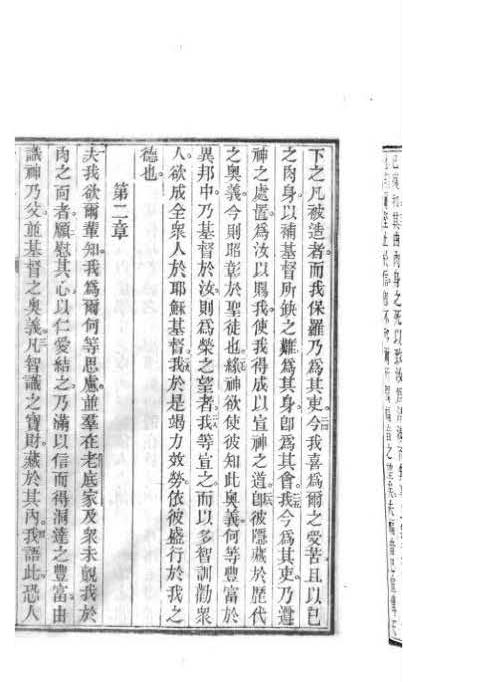 下之凡被造者。而我保羅乃爲其吏。今我喜爲爾之受苦且以己
之肉身以補基督所缺之難爲其身。卽爲其會。我今爲其吏。乃遵
神之處置爲汝以賜我使我得成以宣神之道。卽彼隱藏於歷代
之奧義今則昭彰於聖徒也。緣神欲使彼知此奧義何等豐富於
異邦中。乃基督於汝則爲榮之望者。我等宣之。而以多智訓勸衆
人。欲成全衆人於耶穌基督。我於是竭力效勞。依彼盛行於我之
德也。
第二章
夫我欲爾輩知。我爲爾何等思慮。並羣在老底家及衆未覩我於
肉之面者。願慰其心。以仁愛結之。乃滿以信而得洞達之豐富。由
識神乃父。並基督之奧義。凡智識之寶財藏於其內。我語此。恐人